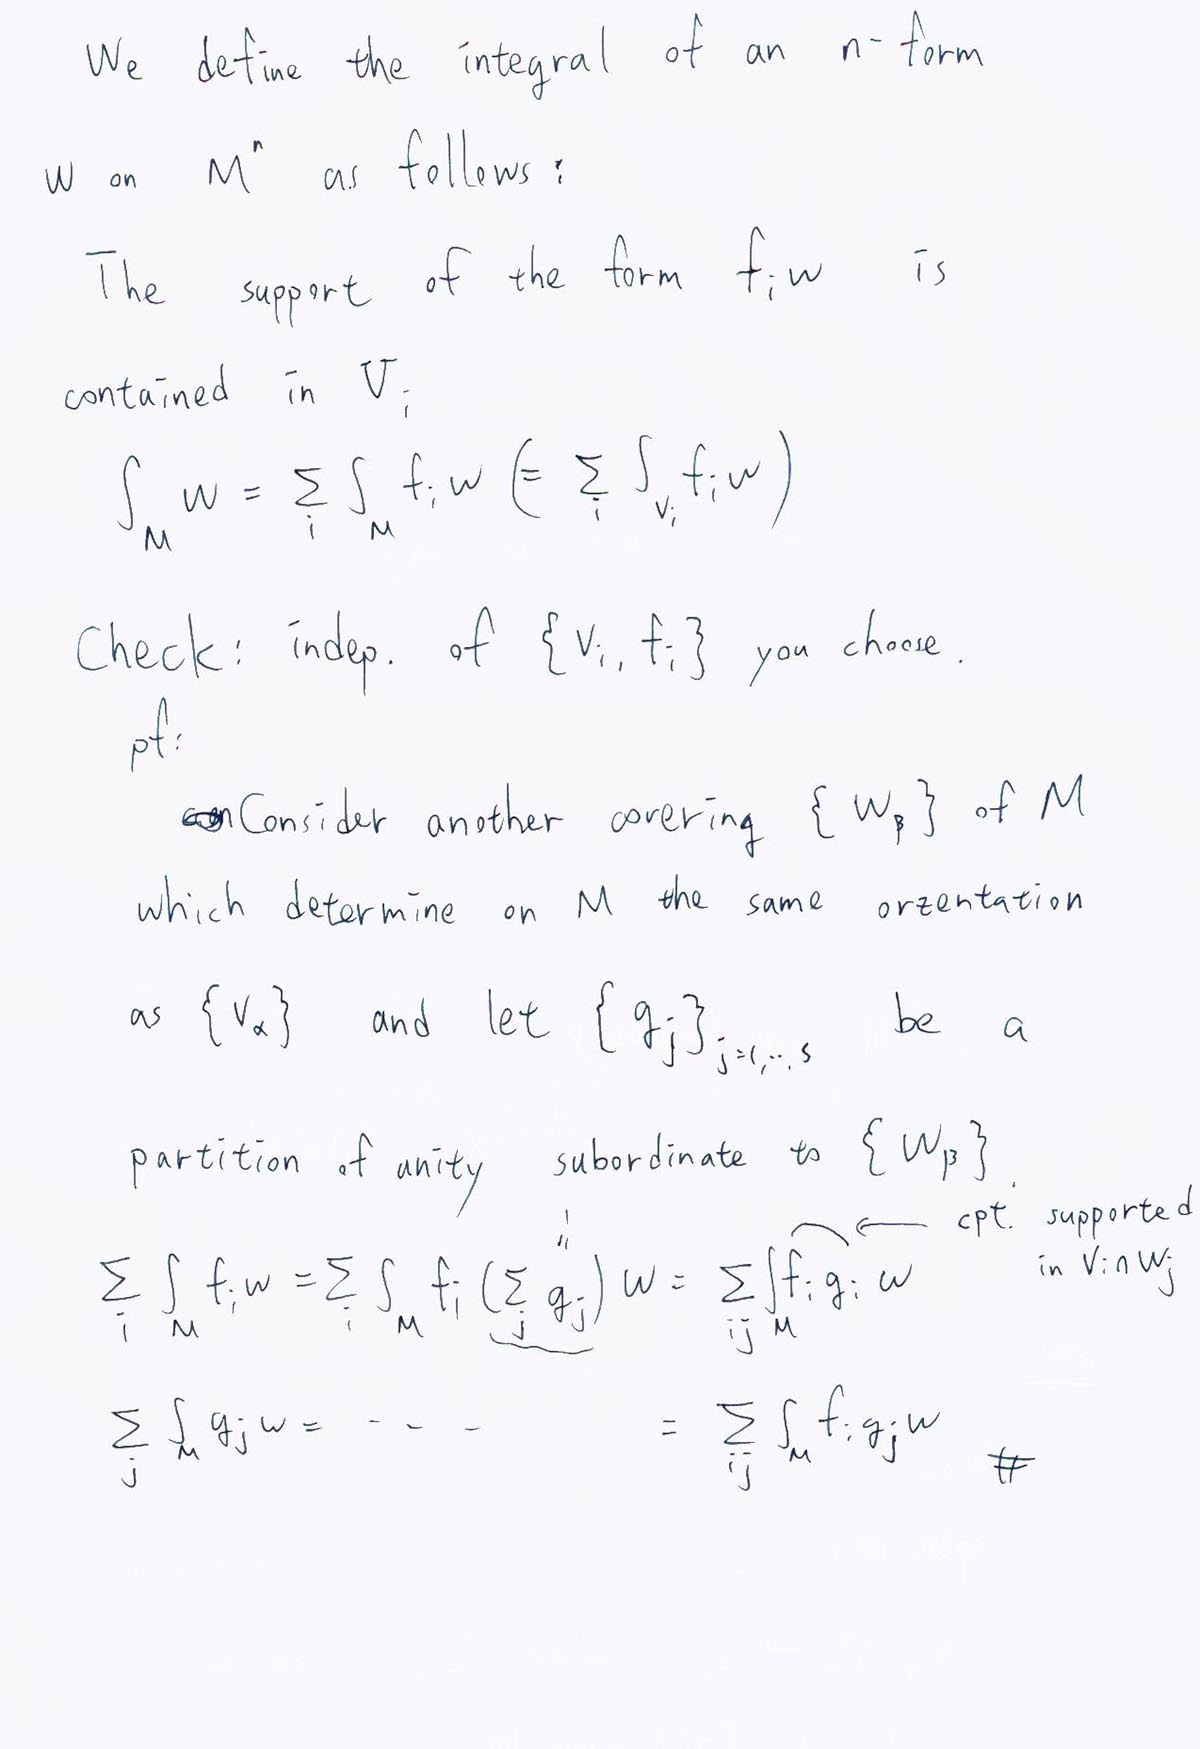 We define the integral of an n-form
w on Mⁿ as follows:
The support of the form f_i w is
contained in V_i
∫_M w = Σ_i ∫_M f_i w (= Σ_i ∫_{V_i} f_i w)
Check: indep. of {V_i, f_i} you choose.
pf:
Consider another covering {W_β} of M
which determine on M the same orzentation
as {V_α} and let {g_j}_{j=1,..,s} be a
partition of unity subordinate to {W_β}.
1
"
← cpt. supported
in V_i ∩ W_j
Σ_i ∫_M f_i w = Σ_i ∫_M f_i (Σ_j g_j) w = Σ_{ij} ∫_M f_i g_i w
Σ_j ∫_M g_j w = - - - = Σ_{ij} ∫_M f_i g_j w #